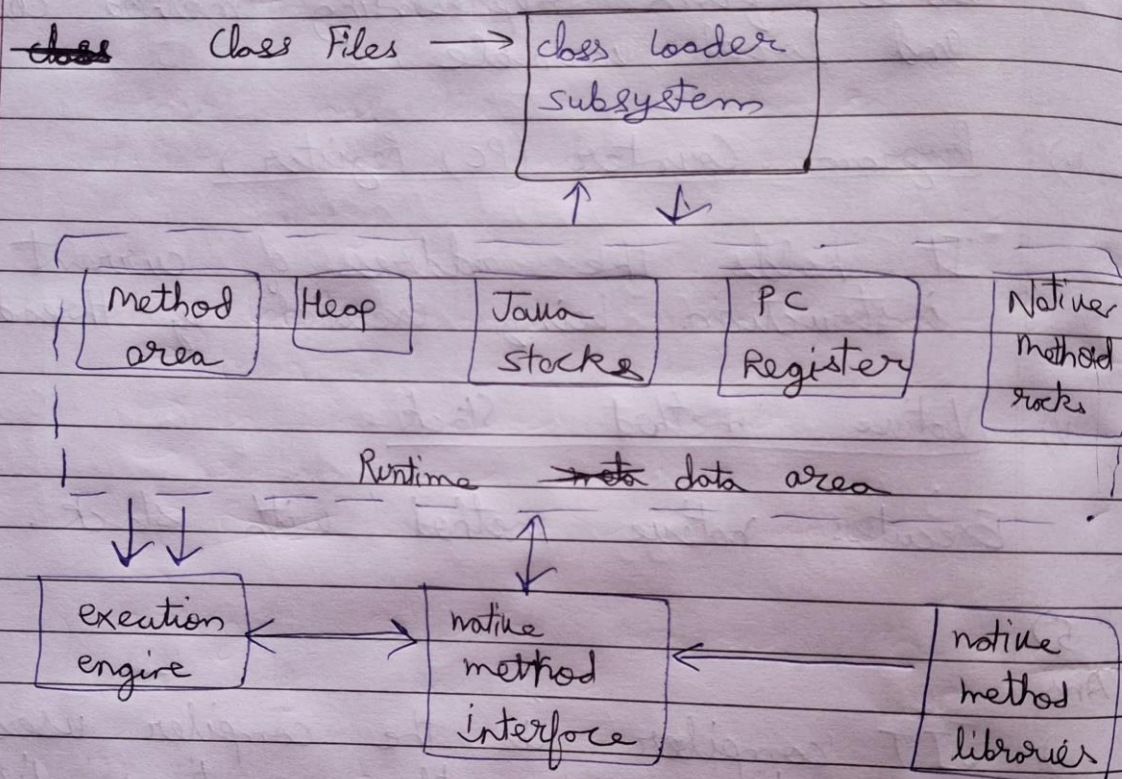 Class Files
class loader
subsystem
Method
area
Heap
Java
stacks
PC
Register
Native
method
rocks
Runtime data area
execution
engine
native
method
interface
native
method
libraries